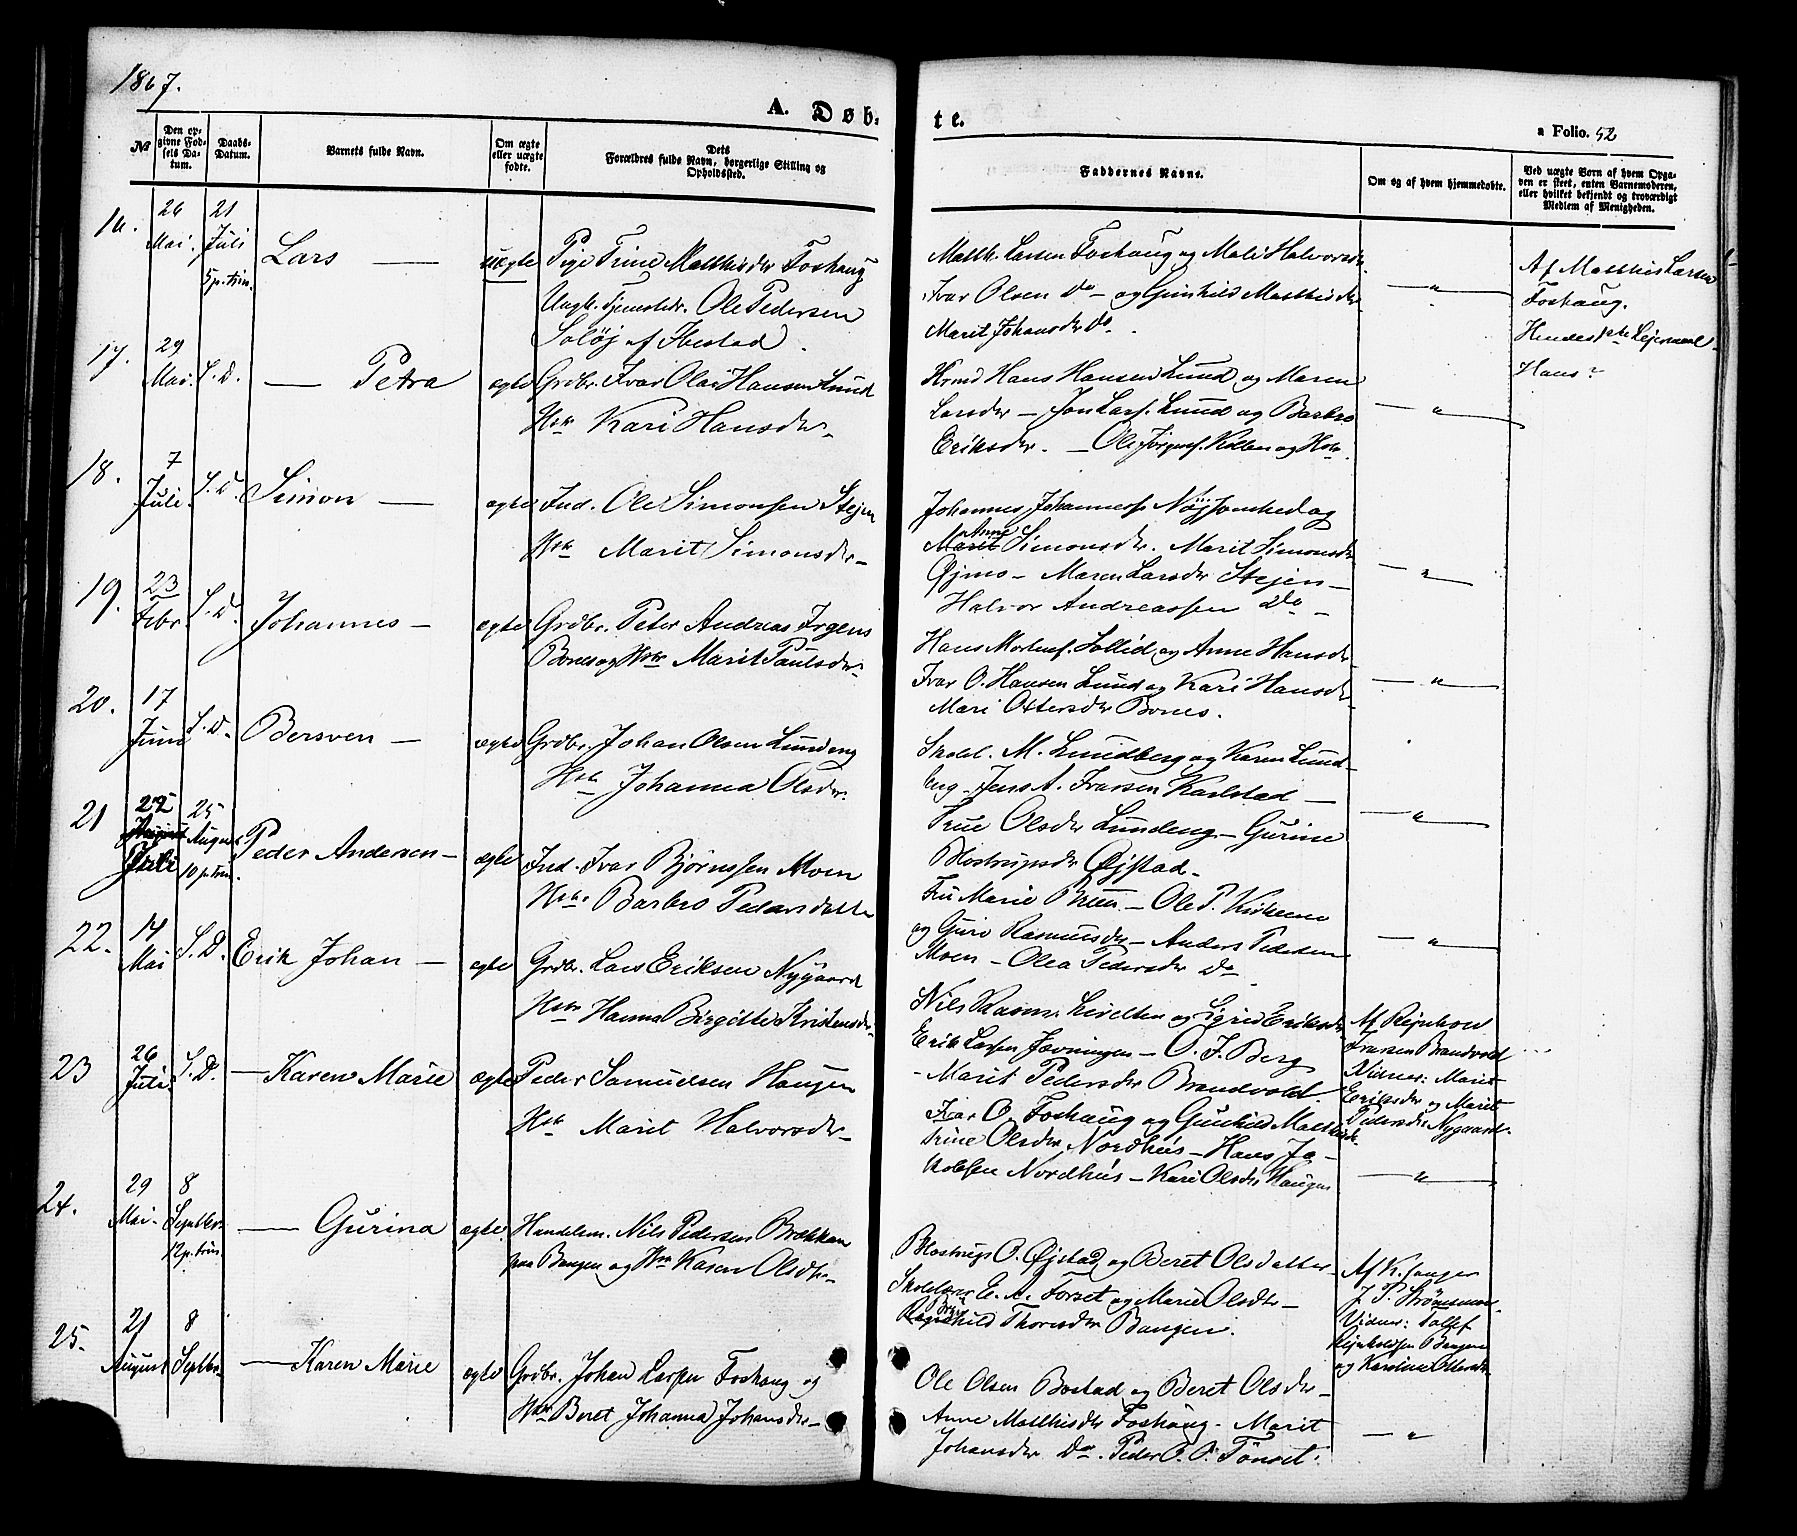 1867.
A. Døb-
te.
a Folio. 52
№
Den opgivne Fødsels Datum.
Daabs-Datum.
Barnets fulde Navn.
Om ægte eller uægte fødte.
Dets Forældres fulde Navn, borgerlige Stilling og Opholdssted.
Faddernes Navne.
Om og af hvem hjemmedøbte.
Ved uægte Børn af hvem Opgaven er skeet, enten Barnemoderen, eller hvilket bekjendt og troværdigt Medlem af Menigheden.
16. 26 Mai. 21 Juli 5 p. trin. Lars — uægte
Pige Trine Matthisdr Foshaug
Ungk. Tjenestek. Ole Pedersen
Soløj af Ibestad.
Matth. Larsen Foshaug og Mali Halvorsdr
Ivar Olsen Do — og Gunhild Matthisdr
Marit Johansdr Do.
— " —
Af Matthis Larsen
Foshaug.
Hendes 1ste Lejermaal
17. 29 Mai. S. D. — Petra ægte
Grdbr. Ivar Olai Hansen Lund
Hstr Kari Hansdr
Krmd Hans Hansen Lund og Maren
Larsdr — Jon Lars. Lund og Barbro
Eriksdr. — Ole Jørgens. Kolben og Hstr.
— " —
Hans?
18. 7 Juli. S. D. Simon — ægte
Ind. Ole Simonsen Stejen
Hstr Marit Simonsdr
Johannes Johanness. Nøjsomhed og
Anne Simonsdr. Marit Simonsdr
Øjmo — Maren Larsdr Stejen —
Halvor Andreassen Do —
— " —
19. 23 Febr. S. D. Johannes — ægte
Grdbr. Peter Andreas Irgens
Bones og Hstr Marit Paulsdr
Hans Mortens. Sollid og Anne Hansdr
Ivar O. Hansen Lund og Kari Hansdr
Mari Ottersdr Bones.
— " —
20. 17 Juni S. D. Bersven — ægte
Grdbr. Johan Olsen Lundeng
Hstr Johanna Olsdr.
Skolel. M. Lundberg og Karen Lund-
eng — Jens A. Ivarsen Karlstad —
Trine Olsdr Lundeng — Gurine
Blostrupsdr Øjstad —
— " —
21 22 Juli 25 August 10 p. trin. Peder Andersen — ægte
Ind. Ivar Bjørnssen Moen
Hstr Barbro Pedersdatter
Fru Marie Bruun — Ole P. Kirkemo
og Guro Rasmusdr — Anders Pedersen
Moen — Olea Pedersdr Do
— " —
22. 14 Mai S. D. Erik Johan — ægte
Grdbr. Lars Eriksen Nygaard
Hstr Hanna Birgitte Kristensdr
Nils Rasm. Lirelten og Sigrid Eriksdr
Erik Larsen Jævningen — O. J. Berg
— Marit Pedersdr Brandvold.
Af Rejnhold
Ivarsen Brandvold
Vidner: Marit
Eriksdr og Marit
Pedersdr Nygaard
23 26 Juli. S. D. — Karen Marie ægte
Peder Samuelsen Haugen
Hstr Marit Halvorsdr —
Ivar O. Foshaug og Gunhild Matthisdr
Trine Olsdr Nordhus — Hans Ja-
kobsen Nordhus — Kari Olsdr Haugen
— " —
24. 29 Mai. 8 Septbr. 12 p. trin. — Gurina ægte.
Handelsm. Nils Pedersen Brækkan
paa Bangen og Hstr Karen Olsdtr —
Blostrup O. Øjstad og Beret Olsdatter —
Skolelærer E. A. Forset og Marie Olsdtr —
Ragnhild Thoresdr Bangen.
Af K. sanger
J. P. Strømsmo.
Vidner: Tollef
Rejnholdsen Bangen
og Karoline Ottersdr
25. 21 August 8 Septbr. — Karen Marie ægte
Grdbr. Johan Larsen Foshaug og
Hstr Beret Johanna Johansdr —
Ole Olsen Bostad og Beret Olsdr —
Anne Matthisdtr Foshaug. Marit
Johansdr Do. Peder O. O. Tønset.
— " —